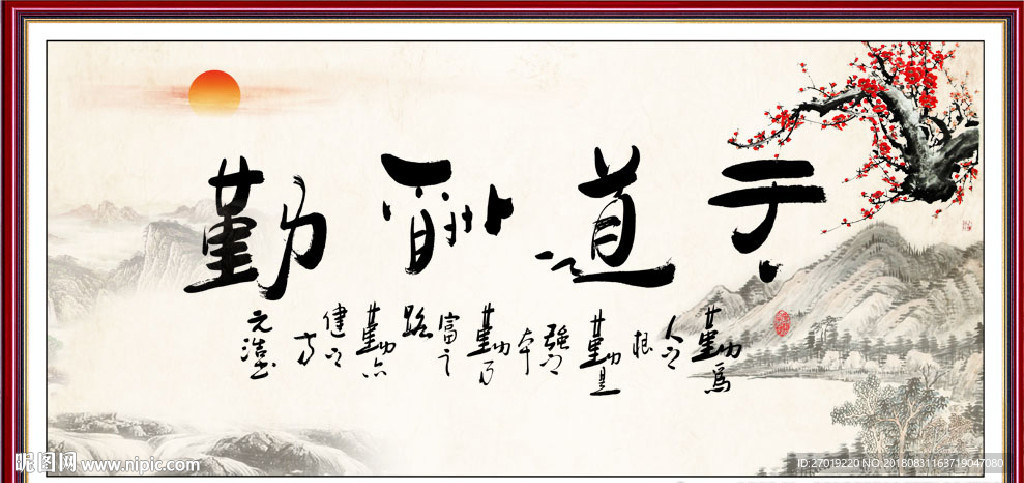 天道酬勤
勤為
人之
根
勤是
强之
本
勤乃
富之
路
勤亦
健之
方
元
昵图网 www.nipic.com
ID:27019220 NO:20180831163719047080